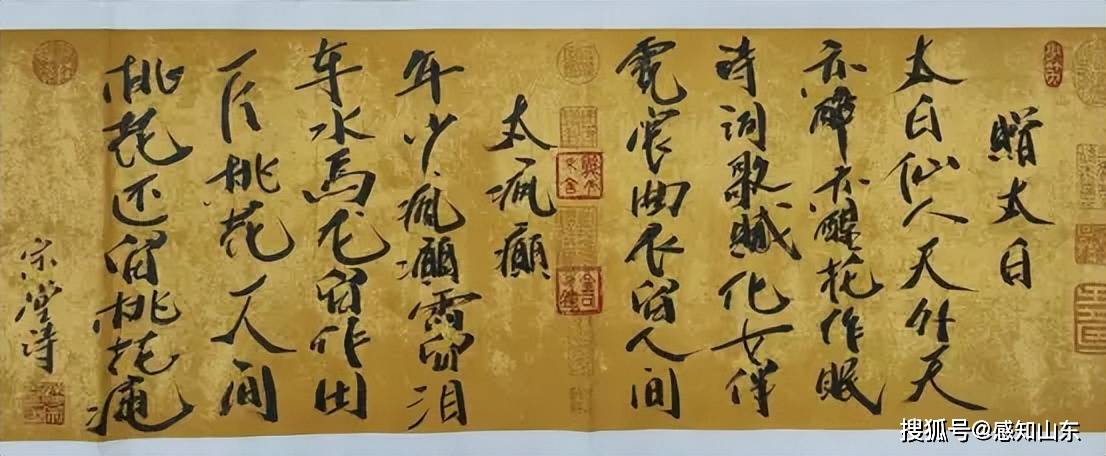 赠太白
太白仙人天外天
亦醉亦醒花作眠
诗词歌赋化女伴
霓裳曲衣留人间
太疯癫
年少疯癫需留泪
车水马龙留作田
一片桃花一人间
桃花还留桃花
宋诗
搜狐号@感知山东